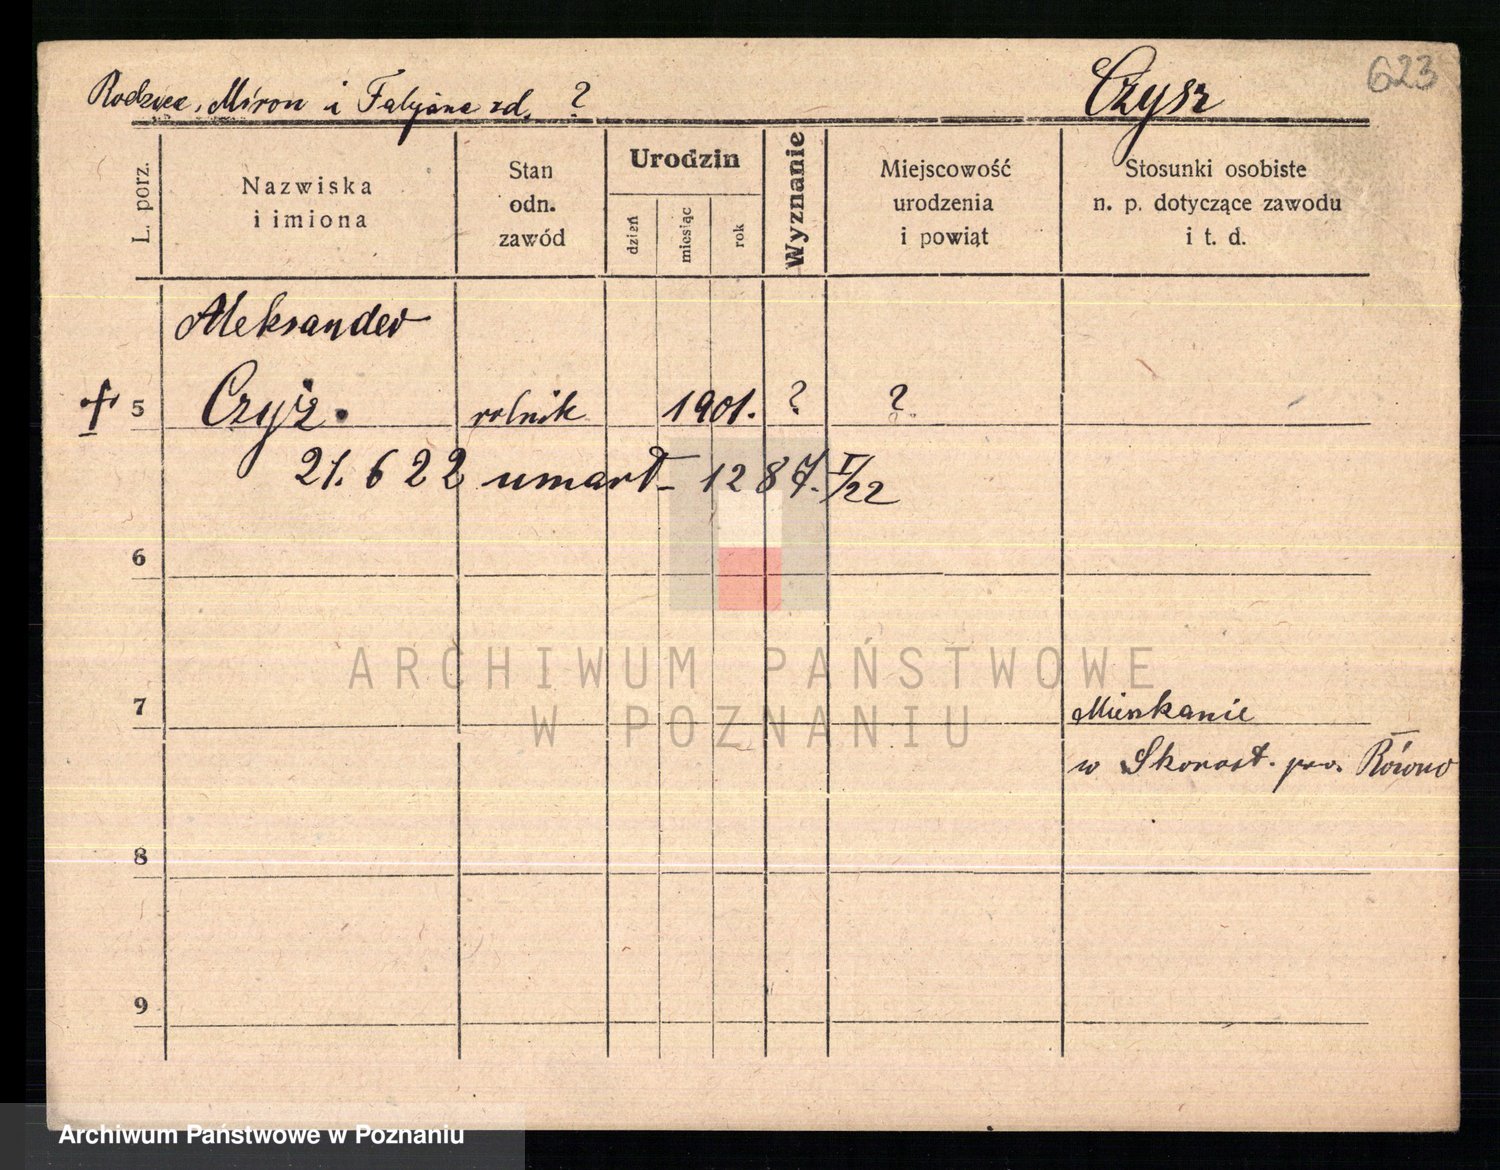 623
Rodzice. Miron i Falyjana zd. ? Czysz
L. porz.
Nazwiska
i imiona
Stan
odn.
zawód
Urodzin
dzień
miesiąc
rok
Wyznanie
Miejscowość
urodzenia
i powiąt
Stosunki osobiste
n. p. dotyczące zawodu
i t. d.
Aleksander
5 Czyż. rolnik 1901. ? ?
21. 6 22 umarł – 1287. I/22
6
7 Mieszkanie
w Skorost. pow. Równo
8
9
ARCHIWUM PAŃSTWOWE
W POZNANIU
Archiwum Państwowe w Poznaniu